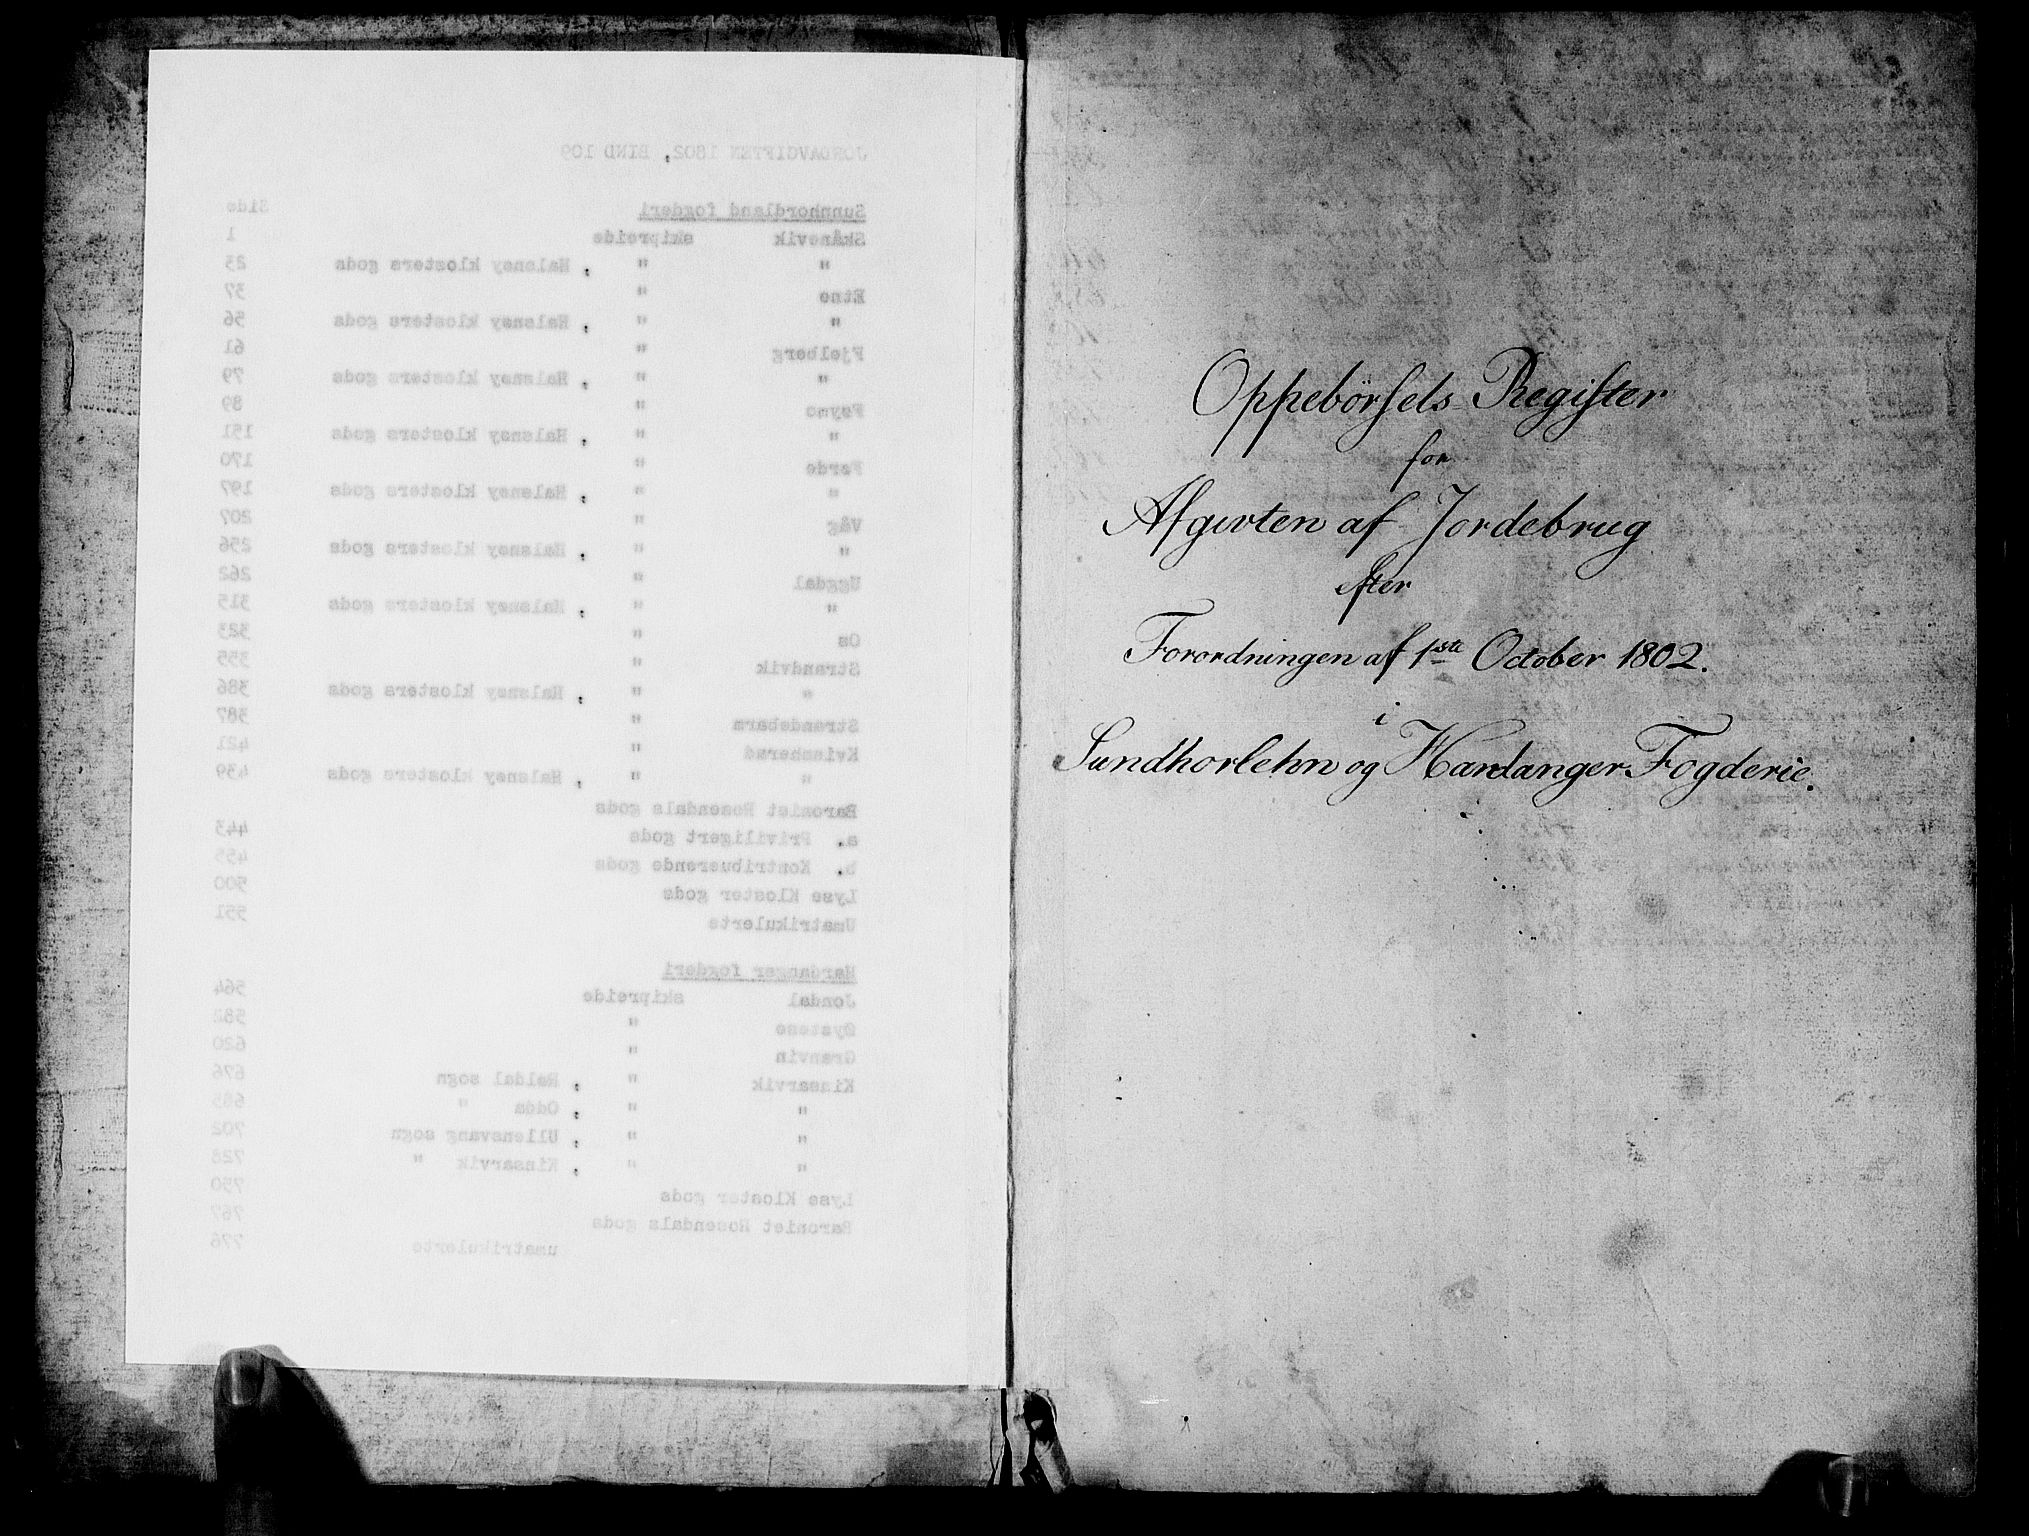 JORDAVGIFTEN 1802, BIND 109
Sunnhordland fogderi Side
Skånevik skipreide 1
" " , Halsnøy klosters gods 23
Etne " 37
" " , Halsnøy klosters gods 56
Fjelberg " 61
" " , Halsnøy klosters gods 79
Føyno " 89
" " , Halsnøy klosters gods 151
Førde " 170
" " , Halsnøy klosters gods 197
Våg " 207
" " , Halsnøy klosters gods 256
Uggdal " 262
" " , Halsnøy klosters gods 315
Os " 323
Strandvik " 355
" " , Halsnøy klosters gods 386
Strandebarm " 387
Kvinnherad " 421
" " , Halsnøy klosters gods 439
Baroniet Rosendals gods
a. Priviligert gods 443
b. Kontribuerende gods 455
Lyse Kloster gods 500
Umatrikulerte 551
Hardanger fogderi
Jondal skipreide 564
Øystese " 582
Granvin " 620
Kinsarvik " , Røldal sogn 676
" " , Odda " 685
" " , Ullensvang sogn 702
" " , Kinsarvik " 728
Lyse Kloster gods 750
Baroniet Rosendals gods 767
umatrikulerte 776
Oppebörsels Register
for
Afgivten af Jordebrug
efter
Forordningen af 1ste October 1802.
i
Sundhorlehn og Hardanger Fogderie.